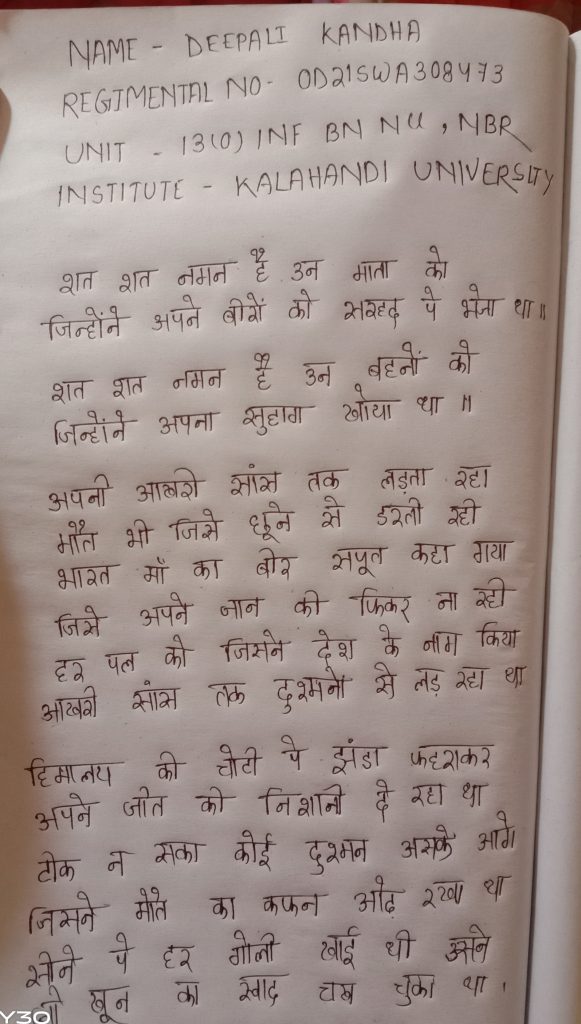 NAME - DEEPALI KANDHA
REGIMENTAL NO- OD21SWA308473
UNIT - 13(O) INF BN NU, NBR
INSTITUTE - KALAHANDI UNIVERSITY
शत शत नमन है उन माता को
जिन्होंने अपने बीरों को सरहद पे भेजा था॥
शत शत नमन है उन बहनों को
जिन्होंने अपना सुहाग खोया था॥
अपनी आखरी सांस तक लड़ता रहा
मौत भी जिसे छूने से डरती रही
भारत माँ का बीर सपूत कहा गया
जिसे अपने जान की फिकर ना रही
हर पल को जिसने देश के नाम किया
आखरी सांस तक दुश्मनों से लड़ रहा था
हिमालय की चोटी पे झंडा फहराकर
अपने जीत की निशानी दे रहा था
टीक न सका कोई दुश्मन उसके आगे
जिसने मौत का कफन ओढ़ रखा था
सीने पे हर गोली खाई थी उसने
खून का स्वाद चख चुका था।
Y30